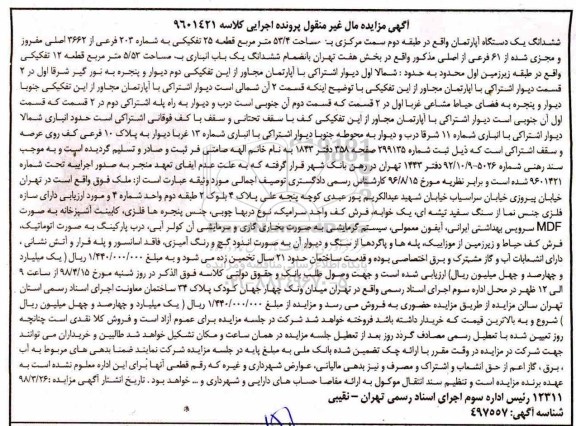 آگهی مزایده مال غیر منقول پرونده اجرایی کلاسه ۹۶۰۱۴۲۱
ششدانگ یک دستگاه آپارتمان واقع در طبقه دوم سمت مرکزی به مساحت ۵۳/۴ متر مربع قطعه ۲۵ تفکیکی به شماره ۲۰۳ فرعی از ۳۶۶۲ اصلی مفروز
و مجزی شده از ۶۱ فرعی از اصلی مذکور واقع در بخش هفت تهران بانضمام ششدانگ یک باب انباری به مساحت ۵/۵۲ متر مربع قطعه ۱۲ تفکیکی
واقع در طبقه زیرزمین اول محدود به حدود : شمالا اول دیوار اشتراکی با آپارتمان مجاور از این تفکیکی دوم دیوار و پنجره به نور گیر شرقا اول در ۲
قسمت دیوار اشتراکی با آپارتمان مجاور از این تفکیکی با توضیح اینکه قسمت ۲ آن شمالی است دیوار اشتراکی با آپارتمان مجاور از این تفکیکی جنوبا
دیوار و پنجره به فضای حیاط مشاعی غربا اول در ۲ قسمت که قسمت دوم آن جنوبی است درب و دیوار به راه پله اشتراکی دوم در ۲ قسمت که قسمت
اول آن جنوبی است دیوار اشتراکی با آپارتمان مجاور از این تفکیکی کف با سقف تحتانی و سقف با کف فوقانی اشتراکی است حدود انباری شمالا
دیوار اشتراکی با انباری شماره ۱۱ شرقا درب و دیوار به محوطه جنوبا دیوار اشتراکی با انباری شماره ۱۳ غربا دیوار به پلاک ۱۰ فرعی کف روی عرصه
و سقف اشتراکی است که ذیل ثبت شماره ۲۹۹۱۳۵ صفحه ۳۵۸ دفتر ۱۸۳۳ به نام خانم الهه صامتی فر ثبت و صادر و تسلیم گردیده است و به موجب
سند رهنی شماره ۵۰۲۶-۹۲/۱۰/۹ دفتر ۱۴۳۳ تهران در رهن بانک شهر قرار گرفته که به علت عدم ایفای تعهد منجر به صدور اجراییه تحت شماره
۹۶۰۱۴۲۱ شده است و برابر نظریه مورخ ۹۶/۸/۱۵ کارشناس رسمی دادگستری توصیف اجمالی مورد وثیقه عبارت است از: ملک فوق واقع است در تهران
خیابان پیروزی خیابان سراسیاب خیابان شهید عبدالکریم پور عبدی کوچه پنجه علی پلاک ۴ بلوک ۲ طبقه دوم واحد شماره ۴ و مورد ارزیابی دارای سازه
فلزی جنس نما از سنگ سفید تیشه ای، یک خوابه فرش کف واحد سرامیک نوع دربها چوبی، جنس پنجره ها فلزی، کابینت آشپزخانه به صورت
MDF سرویس بهداشتی ایرانی، آیفون معمولی، سیستم گرمایشی به صورت بخاری گازی و سرمایشی آن کولر آبی، درب پارکینگ به صورت اتوماتیک،
فرش کف حیاط و زیرزمین از موزاییک، پله ها و پاگردها از سنگ و دیوار آن به صورت اندود گچ و رنگ آمیزی، فاقد آسانسور و پله فرار و آتش نشانی ،
دارای انشعابات آب و گاز مشترک و برق اختصاصی بوده و قدمت ساختمان حدود ۲۱ سال تخمین زده می شود و به مبلغ ۱/۴۴۰/۰۰۰/۰۰۰ ریال ( یک میلیارد
و چهارصد و چهل میلیون ریال) ارزیابی شده است و جهت وصول طلب بانک و حقوق دولتی کلاسه فوق الذکر در روز شنبه مورخ ۹۸/۴/۱۵ از ساعت ۹
الی ۱۲ ظهر در محل اداره سوم اجرای اسناد رسمی واقع در تهران میدان ونک ابتدای چهار جهان کودک پلاک ۳۴ ساختمان معاونت اجرای اسناد رسمی استان
تهران سالن مزایده از طریق مزایده حضوری به فروش می رسد و مزایده از مبلغ ۱/۴۴۰/۰۰۰/۰۰۰ ریال ( یک میلیارد و چهارصد و چهل میلیون ریال
) شروع و به بالاترین قیمت که خریدار داشته باشد فروخته خواهد شد شرکت در جلسه مزایده برای عموم آزاد است و فروش کلا نقدی است چنانچه
روز تعیین شده با تعطیل رسمی مصادف گردد روز بعد از تعطیل جلسه مزایده در همان ساعت و مکان تشکیل خواهد شد طالبین و خریداران می توانند
جهت شرکت در مزایده در وقت مقرر با ارائه چک تضمین شده بانک ملی به مبلغ پایه در جلسه مزایده شرکت نمایند ضمنا بدهی های مربوط به آب
، برق ، گاز اعم از حق انشعاب و اشتراک و مصرف و نیز بدهی مالیاتی، عوارض شهرداری و غیره که رقم قطعی آنها برای این اداره معلوم نشده است به
عهده برنده مزایده است و تنظیم سند انتقال موکول به ارائه مفاصا حساب های دارایی و شهرداری و ... خواهد بود . تاریخ انتشار آگهی مزایده: ۹۸/۳/۲۶
۱۲۳۱۱ رئیس اداره سوم اجرای اسناد رسمی تهران – نقیبی
شناسه آگهی: ۴۹۷۵۵۷